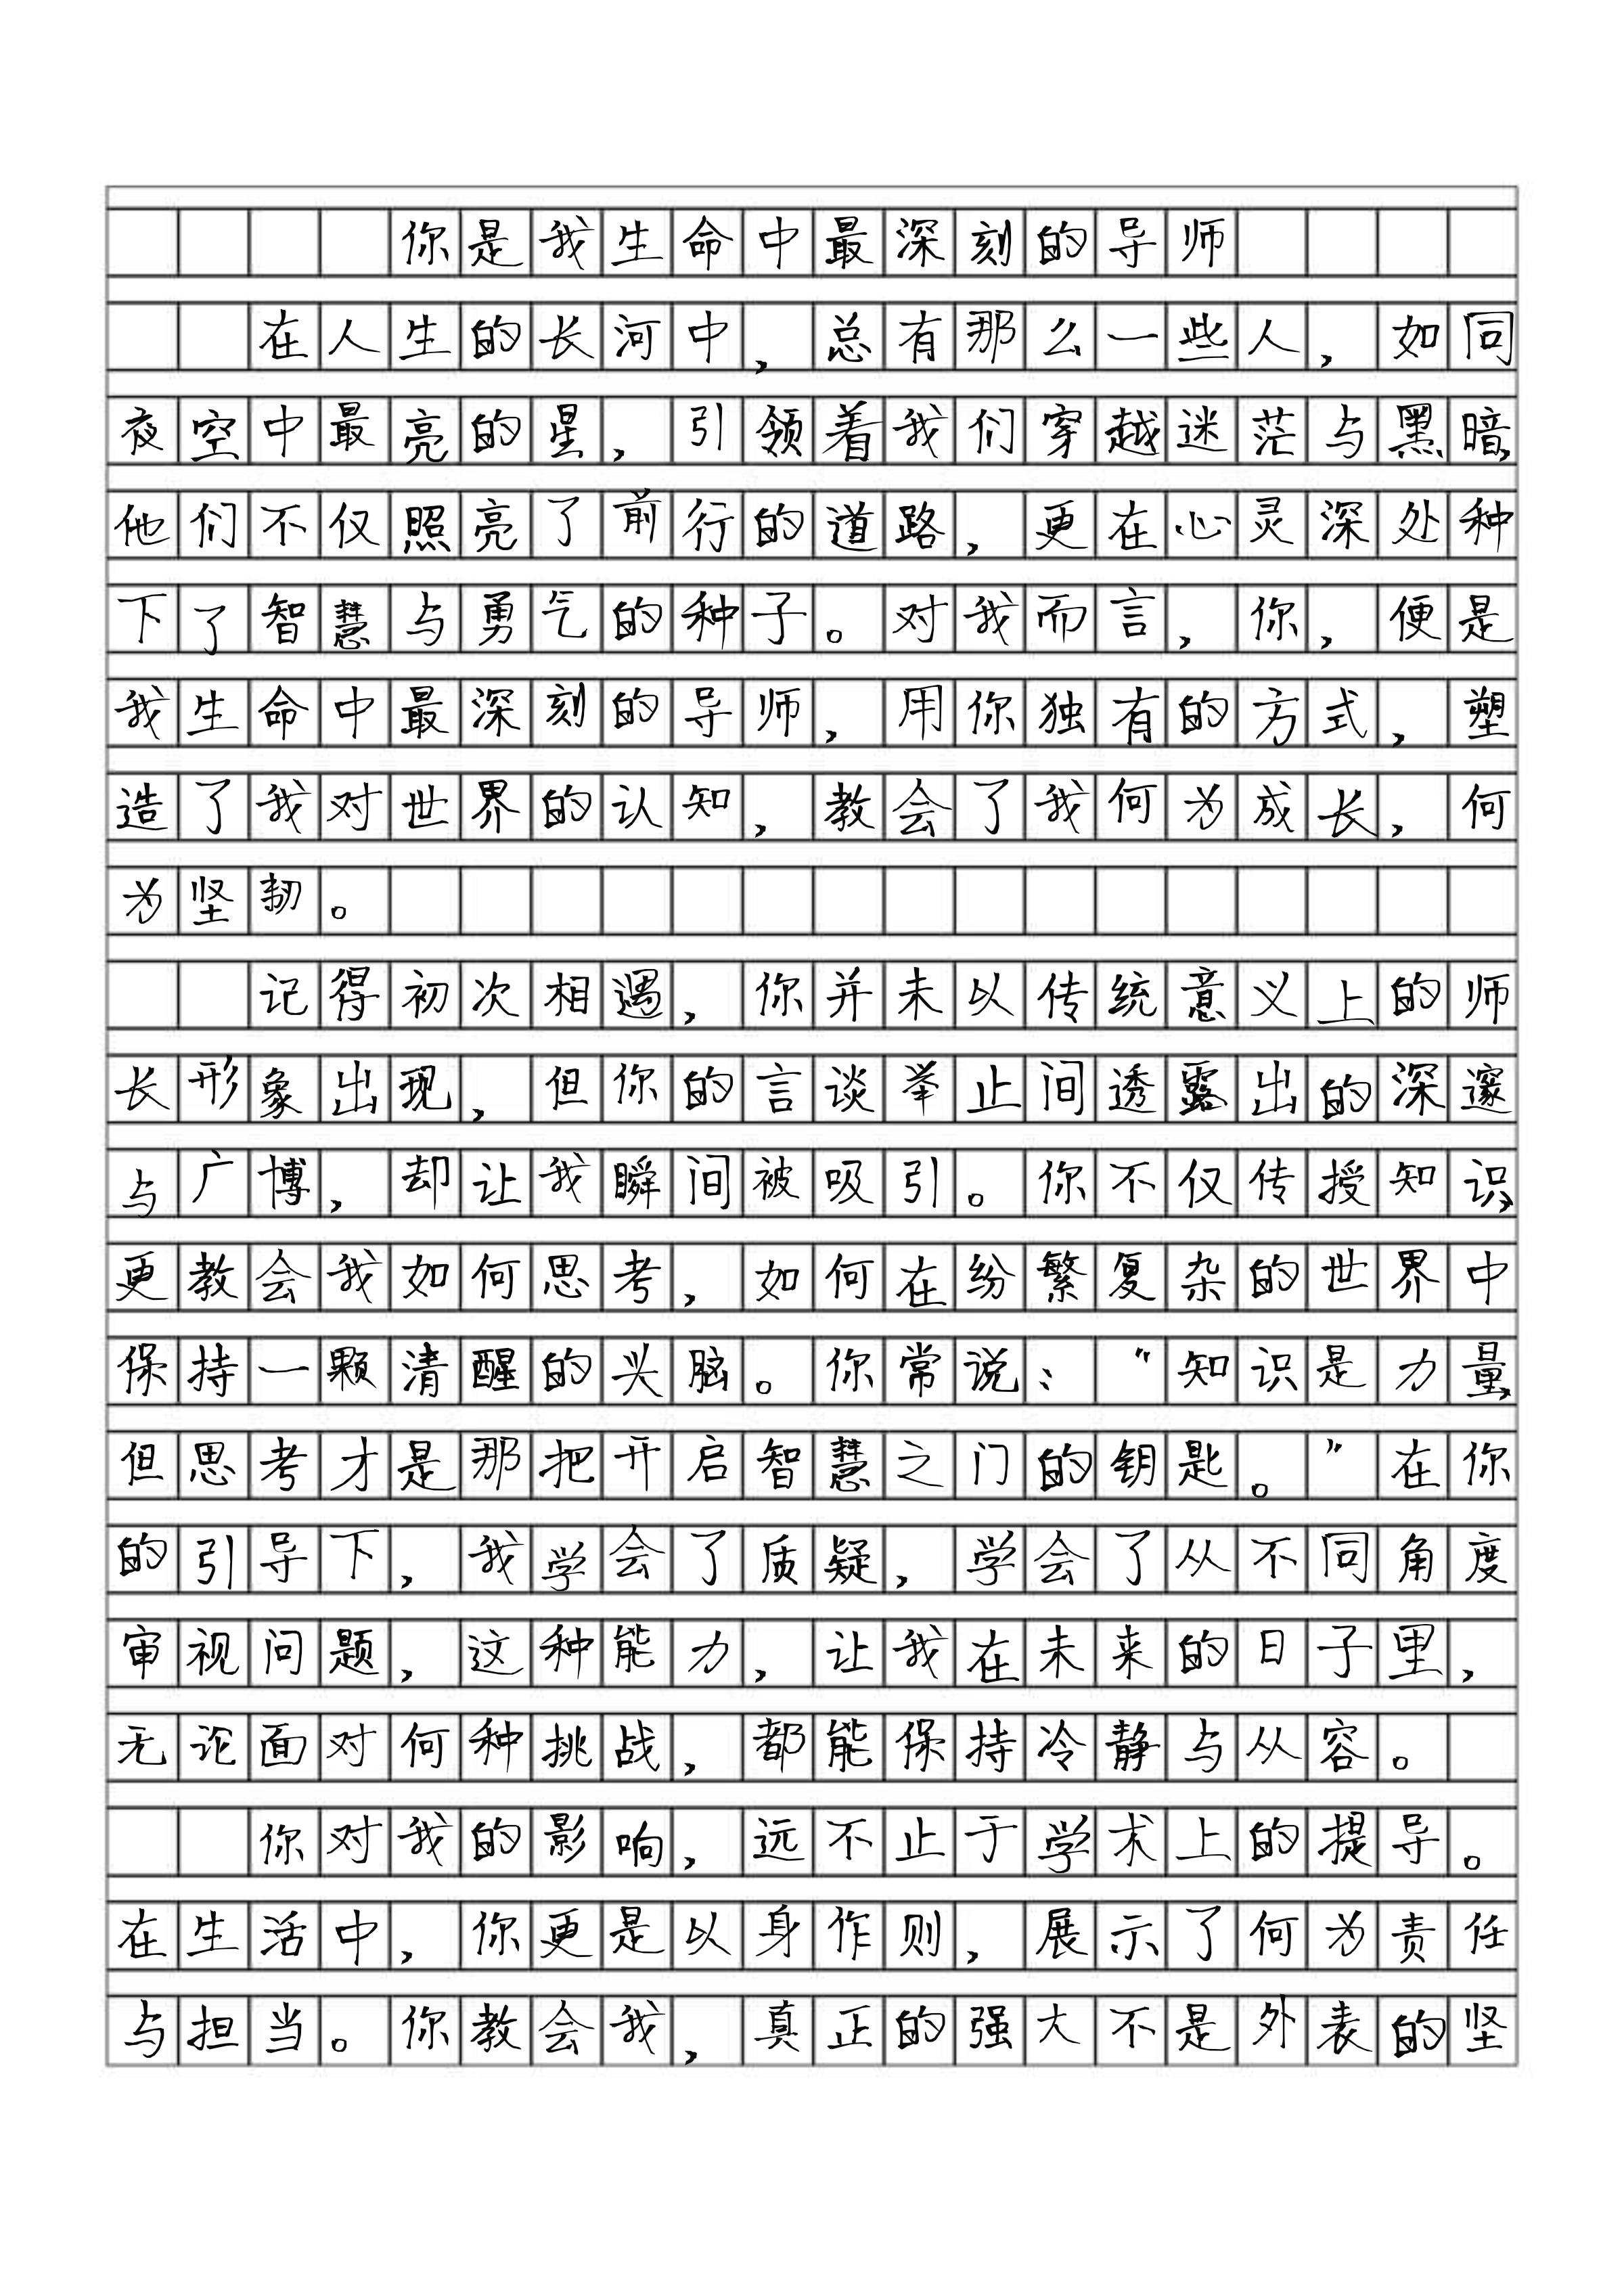 你是我生命中最深刻的导师
在人生的长河中，总有那么一些人，如同
夜空中最亮的星，引领着我们穿越迷茫与黑暗，
他们不仅照亮了前行的道路，更在心灵深处种
下了智慧与勇气的种子。对我而言，你，便是
我生命中最深刻的导师，用你独有的方式，塑
造了我对世界的认知，教会了我何为成长，何
为坚韧。
记得初次相遇，你并未以传统意义上的师
长形象出现，但你的言谈举止间透露出的深邃
与广博，却让我瞬间被吸引。你不仅传授知识，
更教会我如何思考，如何在纷繁复杂的世界中
保持一颗清醒的头脑。你常说：“知识是力量，
但思考才是那把开启智慧之门的钥匙。”在你
的引导下，我学会了质疑，学会了从不同角度
审视问题，这种能力，让我在未来的日子里，
无论面对何种挑战，都能保持冷静与从容。
你对我的影响，远不止于学术上的提导。
在生活中，你更是以身作则，展示了何为责任
与担当。你教会我，真正的强大不是外表的坚